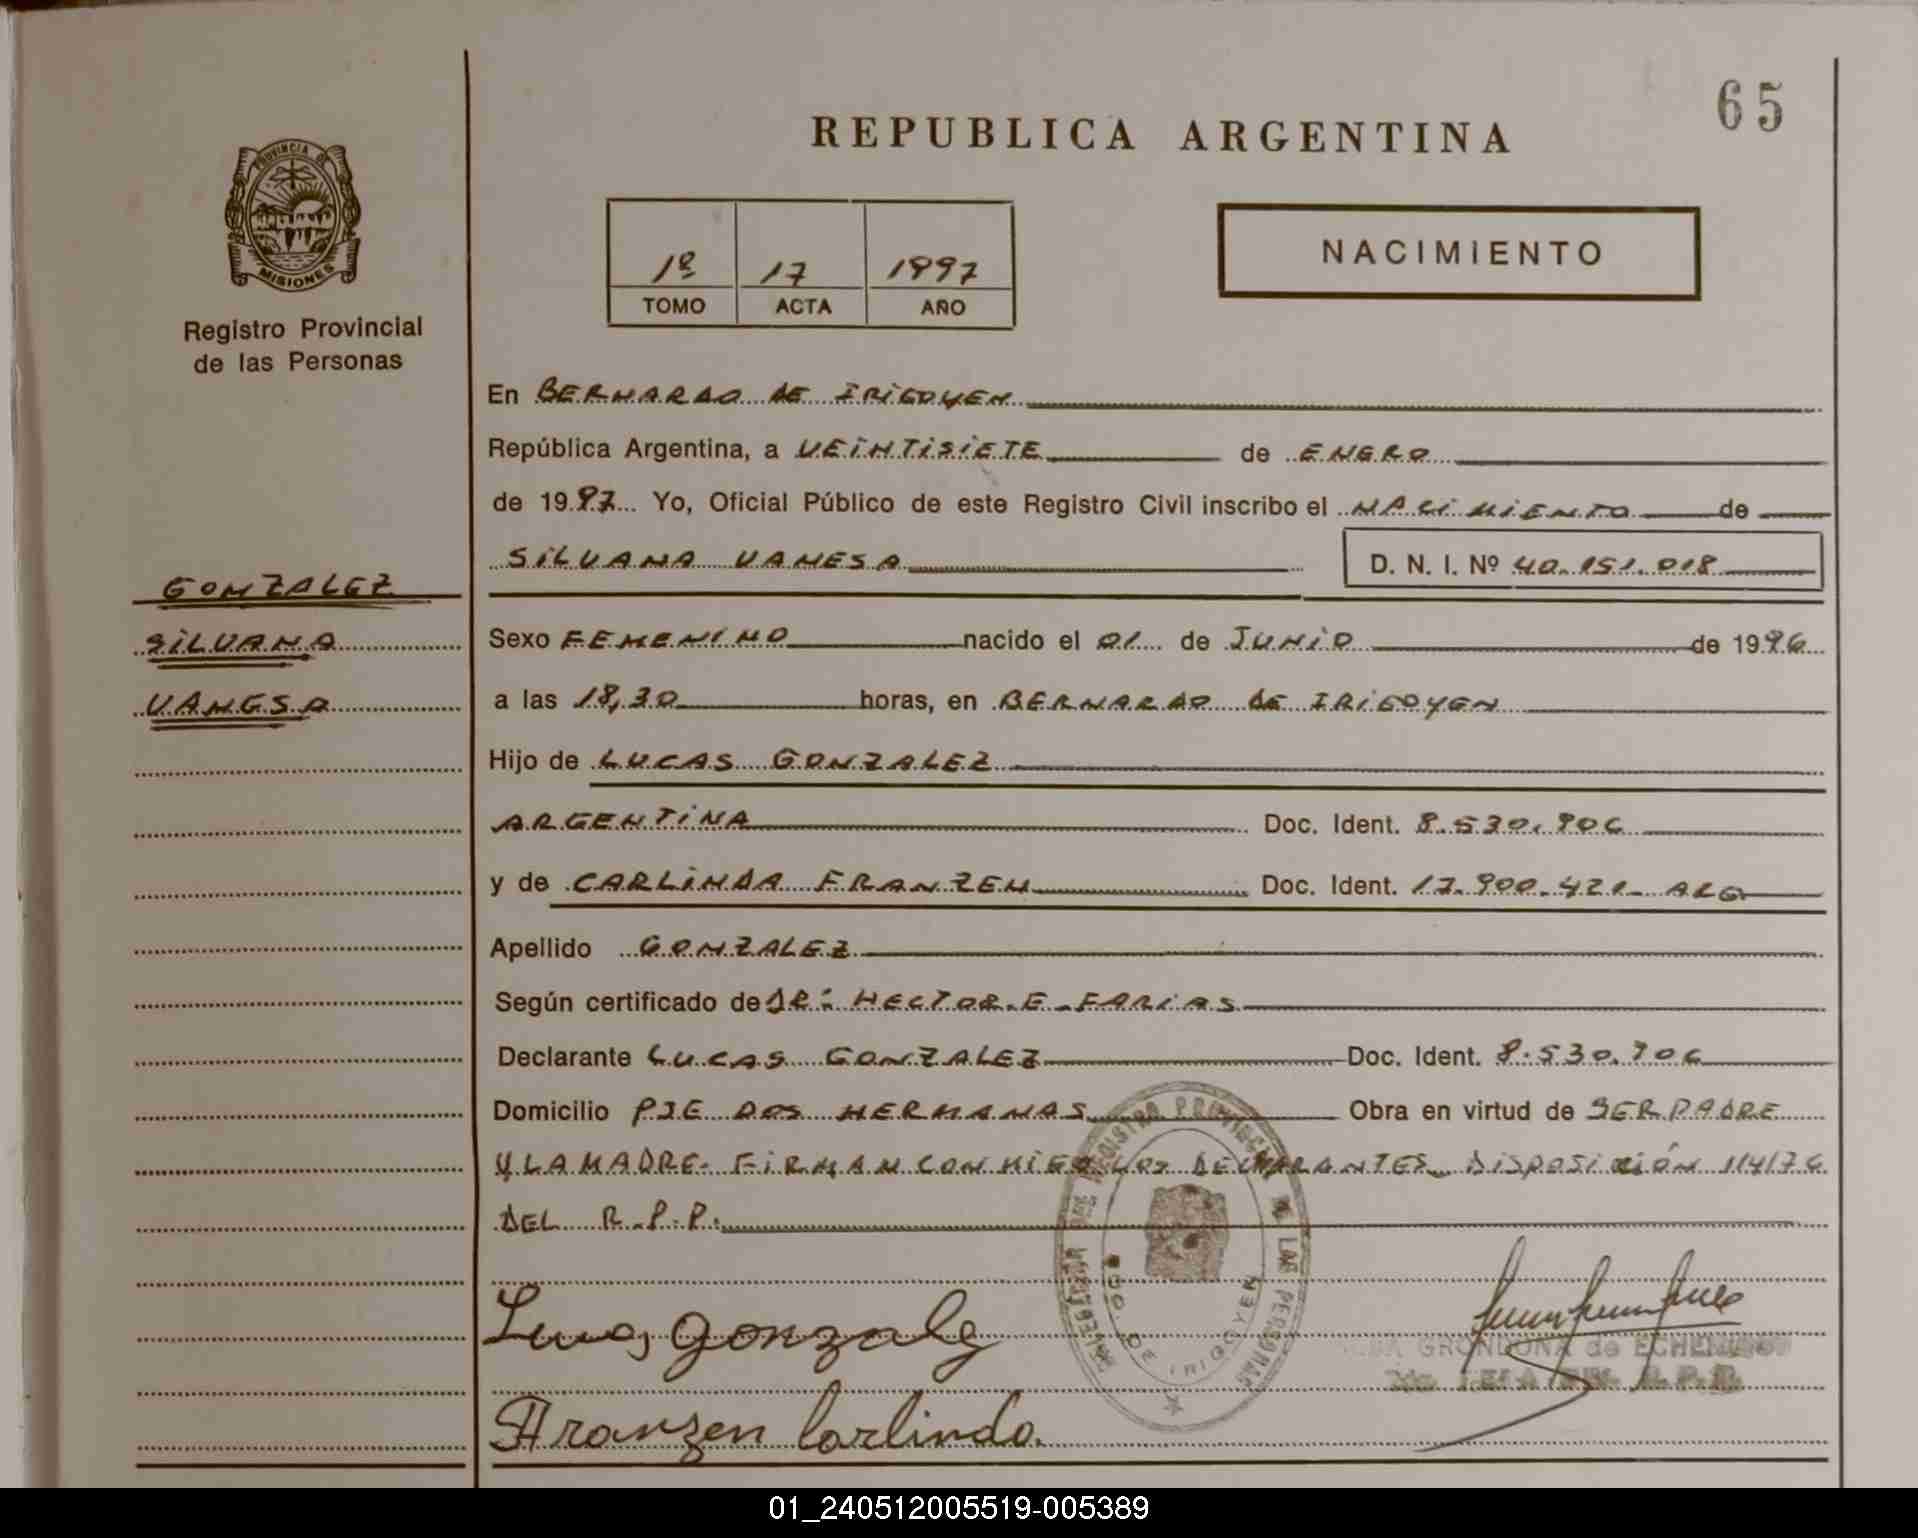 65
REPUBLICA ARGENTINA
PROVINCIA DE
MISIONES
Registro Provincial
de las Personas
1º 17 1997
TOMO ACTA AÑO
NACIMIENTO
En BERNARDO DE IRIGOYEN
República Argentina, a VEINTISIETE de ENERO
de 1997 Yo, Oficial Público de este Registro Civil inscribo el NACIMIENTO de
SILVANA VANESA D. N. I. Nº 40.151.018
GONZALEZ
SILVANA
VANESA
Sexo FEMENINO nacido el 01 de JUNIO de 1996
a las 18,30 horas, en BERNARDO DE IRIGOYEN
Hijo de LUCAS GONZALEZ
ARGENTINA Doc. Ident. 8.530.906
y de CARLINDA FRANZEN Doc. Ident. 17.900.421 ARG
Apellido GONZALEZ
Según certificado de DR: HECTOR E. FARIAS
Declarante LUCAS GONZALEZ Doc. Ident. 8.530.906
Domicilio PJE DOS HERMANAS Obra en virtud de SER PADRE
Y LA MADRE. FIRMAN CONMIGO LOS DECLARANTES DISPOSICIÓN 114/76
DEL R.P.P.
REGISTRO PROVINCIAL DE LAS PERSONAS
BDO. DE IRIGOYEN
Lucas Gonzalez
GRONDONA de
R.P.P.
Franzen Carlinda.
01_240512005519-005389